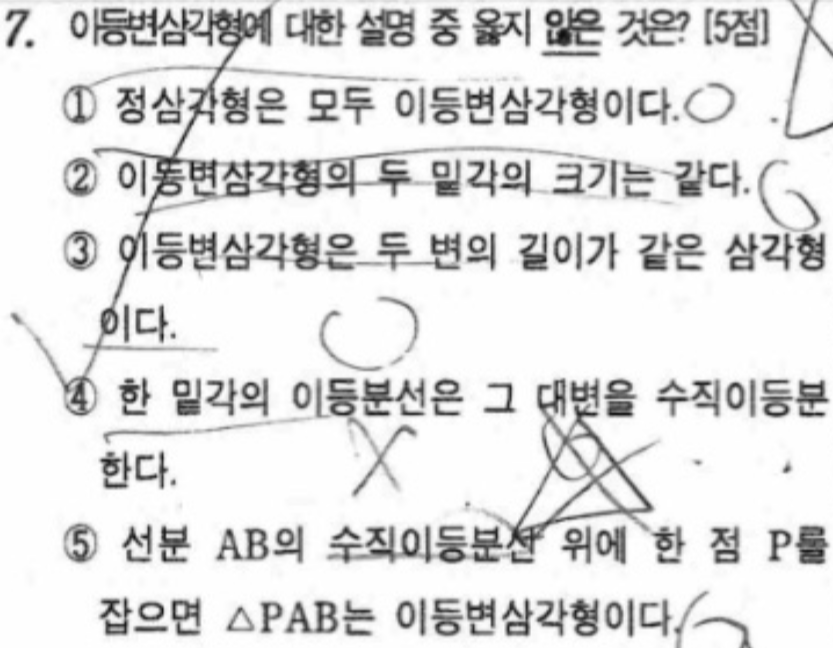 7. 이등변삼각형에 대한 설명 중 옳지 않은 것은? [5점]
① 정삼각형은 모두 이등변삼각형이다.
② 이등변삼각형의 두 밑각의 크기는 같다.
③ 이등변삼각형은 두 변의 길이가 같은 삼각형
이다.
④ 한 밑각의 이등분선은 그 대변을 수직이등분
한다.
⑤ 선분 AB의 수직이등분선 위에 한 점 P를
잡으면 △PAB는 이등변삼각형이다.